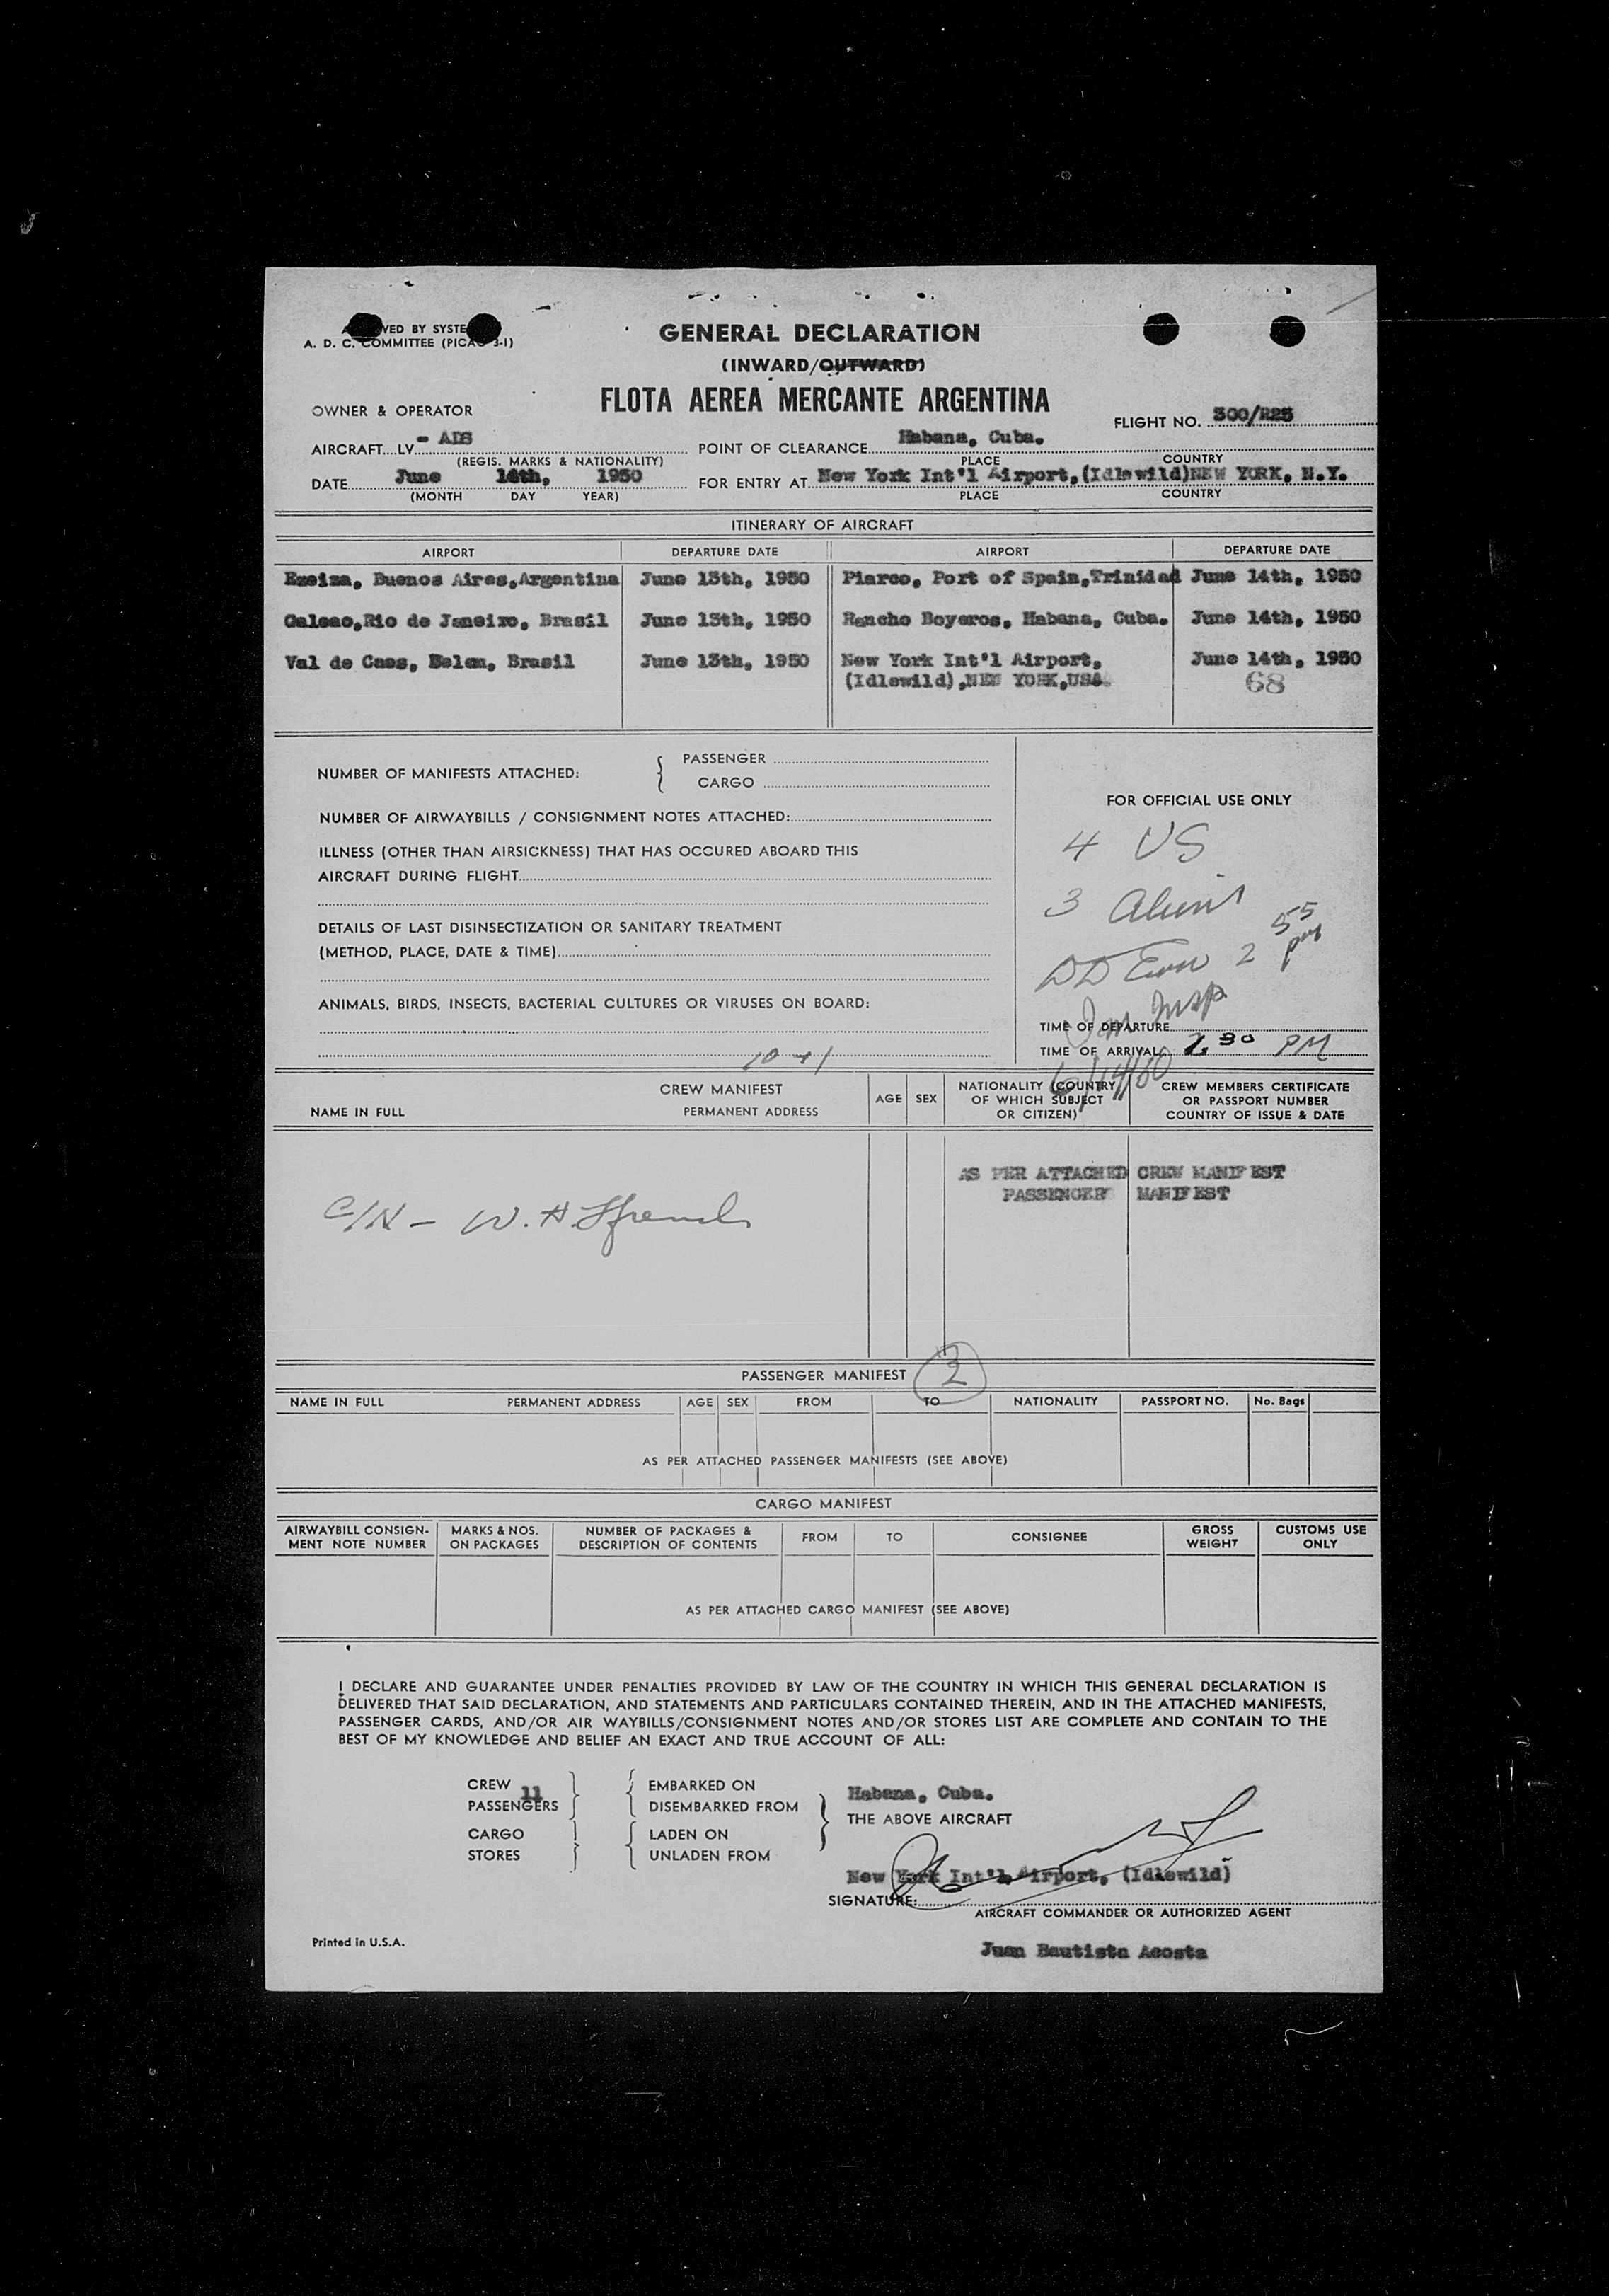 GENERAL DECLARATION
(INWARD/OUTWARD)
FLOTA AEREA MERCANTE ARGENTINA
VED BY SYSTE
A. D. C. COMMITTEE (PICAO 3-1)
OWNER & OPERATOR
FLIGHT NO. 300/R25
AIRCRAFT LV - ADS
(REGIS. MARKS & NATIONALITY)
POINT OF CLEARANCE Habana, Cuba.
PLACE COUNTRY
DATE June 14th, 1950
(MONTH DAY YEAR)
FOR ENTRY AT New York Int'l Airport,(Idlewild)NEW YORK, N.Y.
PLACE COUNTRY
ITINERARY OF AIRCRAFT
AIRPORT DEPARTURE DATE AIRPORT DEPARTURE DATE
Ezeiza, Buenos Aires,Argentina June 13th, 1950 Piarco, Port of Spain,Trinidad June 14th, 1950
Galeao,Rio de Janeiro, Brasil June 13th, 1950 Rancho Boyeros, Habana, Cuba. June 14th, 1950
Val de Caes, Belem, Brasil June 13th, 1950 New York Int'l Airport, June 14th, 1950
(Idlewild),NEW YORK,USA. 68
NUMBER OF MANIFESTS ATTACHED: { PASSENGER
CARGO
NUMBER OF AIRWAYBILLS / CONSIGNMENT NOTES ATTACHED:
ILLNESS (OTHER THAN AIRSICKNESS) THAT HAS OCCURED ABOARD THIS
AIRCRAFT DURING FLIGHT
DETAILS OF LAST DISINSECTIZATION OR SANITARY TREATMENT
(METHOD, PLACE, DATE & TIME)
ANIMALS, BIRDS, INSECTS, BACTERIAL CULTURES OR VIRUSES ON BOARD:
10 + 1
FOR OFFICIAL USE ONLY
4 US
3 Aliens
2 55 pm
Imm Insp
TIME OF DEPARTURE
TIME OF ARRIVAL 2.30 PM
6/14/50
CREW MANIFEST
NAME IN FULL PERMANENT ADDRESS AGE SEX NATIONALITY (COUNTRY OF WHICH SUBJECT OR CITIZEN) CREW MEMBERS CERTIFICATE OR PASSPORT NUMBER COUNTRY OF ISSUE & DATE
AS PER ATTACHED CREW MANIFEST
PASSENGER MANIFEST
C/N - W. H
PASSENGER MANIFEST 2
NAME IN FULL PERMANENT ADDRESS AGE SEX FROM TO NATIONALITY PASSPORT NO. No. Bags
AS PER ATTACHED PASSENGER MANIFESTS (SEE ABOVE)
CARGO MANIFEST
AIRWAYBILL CONSIGN- MENT NOTE NUMBER MARKS & NOS. ON PACKAGES NUMBER OF PACKAGES & DESCRIPTION OF CONTENTS FROM TO CONSIGNEE GROSS WEIGHT CUSTOMS USE ONLY
AS PER ATTACHED CARGO MANIFEST (SEE ABOVE)
I DECLARE AND GUARANTEE UNDER PENALTIES PROVIDED BY LAW OF THE COUNTRY IN WHICH THIS GENERAL DECLARATION IS
DELIVERED THAT SAID DECLARATION, AND STATEMENTS AND PARTICULARS CONTAINED THEREIN, AND IN THE ATTACHED MANIFESTS,
PASSENGER CARDS, AND/OR AIR WAYBILLS/CONSIGNMENT NOTES AND/OR STORES LIST ARE COMPLETE AND CONTAIN TO THE
BEST OF MY KNOWLEDGE AND BELIEF AN EXACT AND TRUE ACCOUNT OF ALL:
CREW 11 EMBARKED ON Habana, Cuba.
PASSENGERS DISEMBARKED FROM THE ABOVE AIRCRAFT
CARGO LADEN ON
STORES UNLADEN FROM
New York Int'l Airport, (Idlewild)
SIGNATURE:
AIRCRAFT COMMANDER OR AUTHORIZED AGENT
Juan Bautista Acosta
Printed in U.S.A.